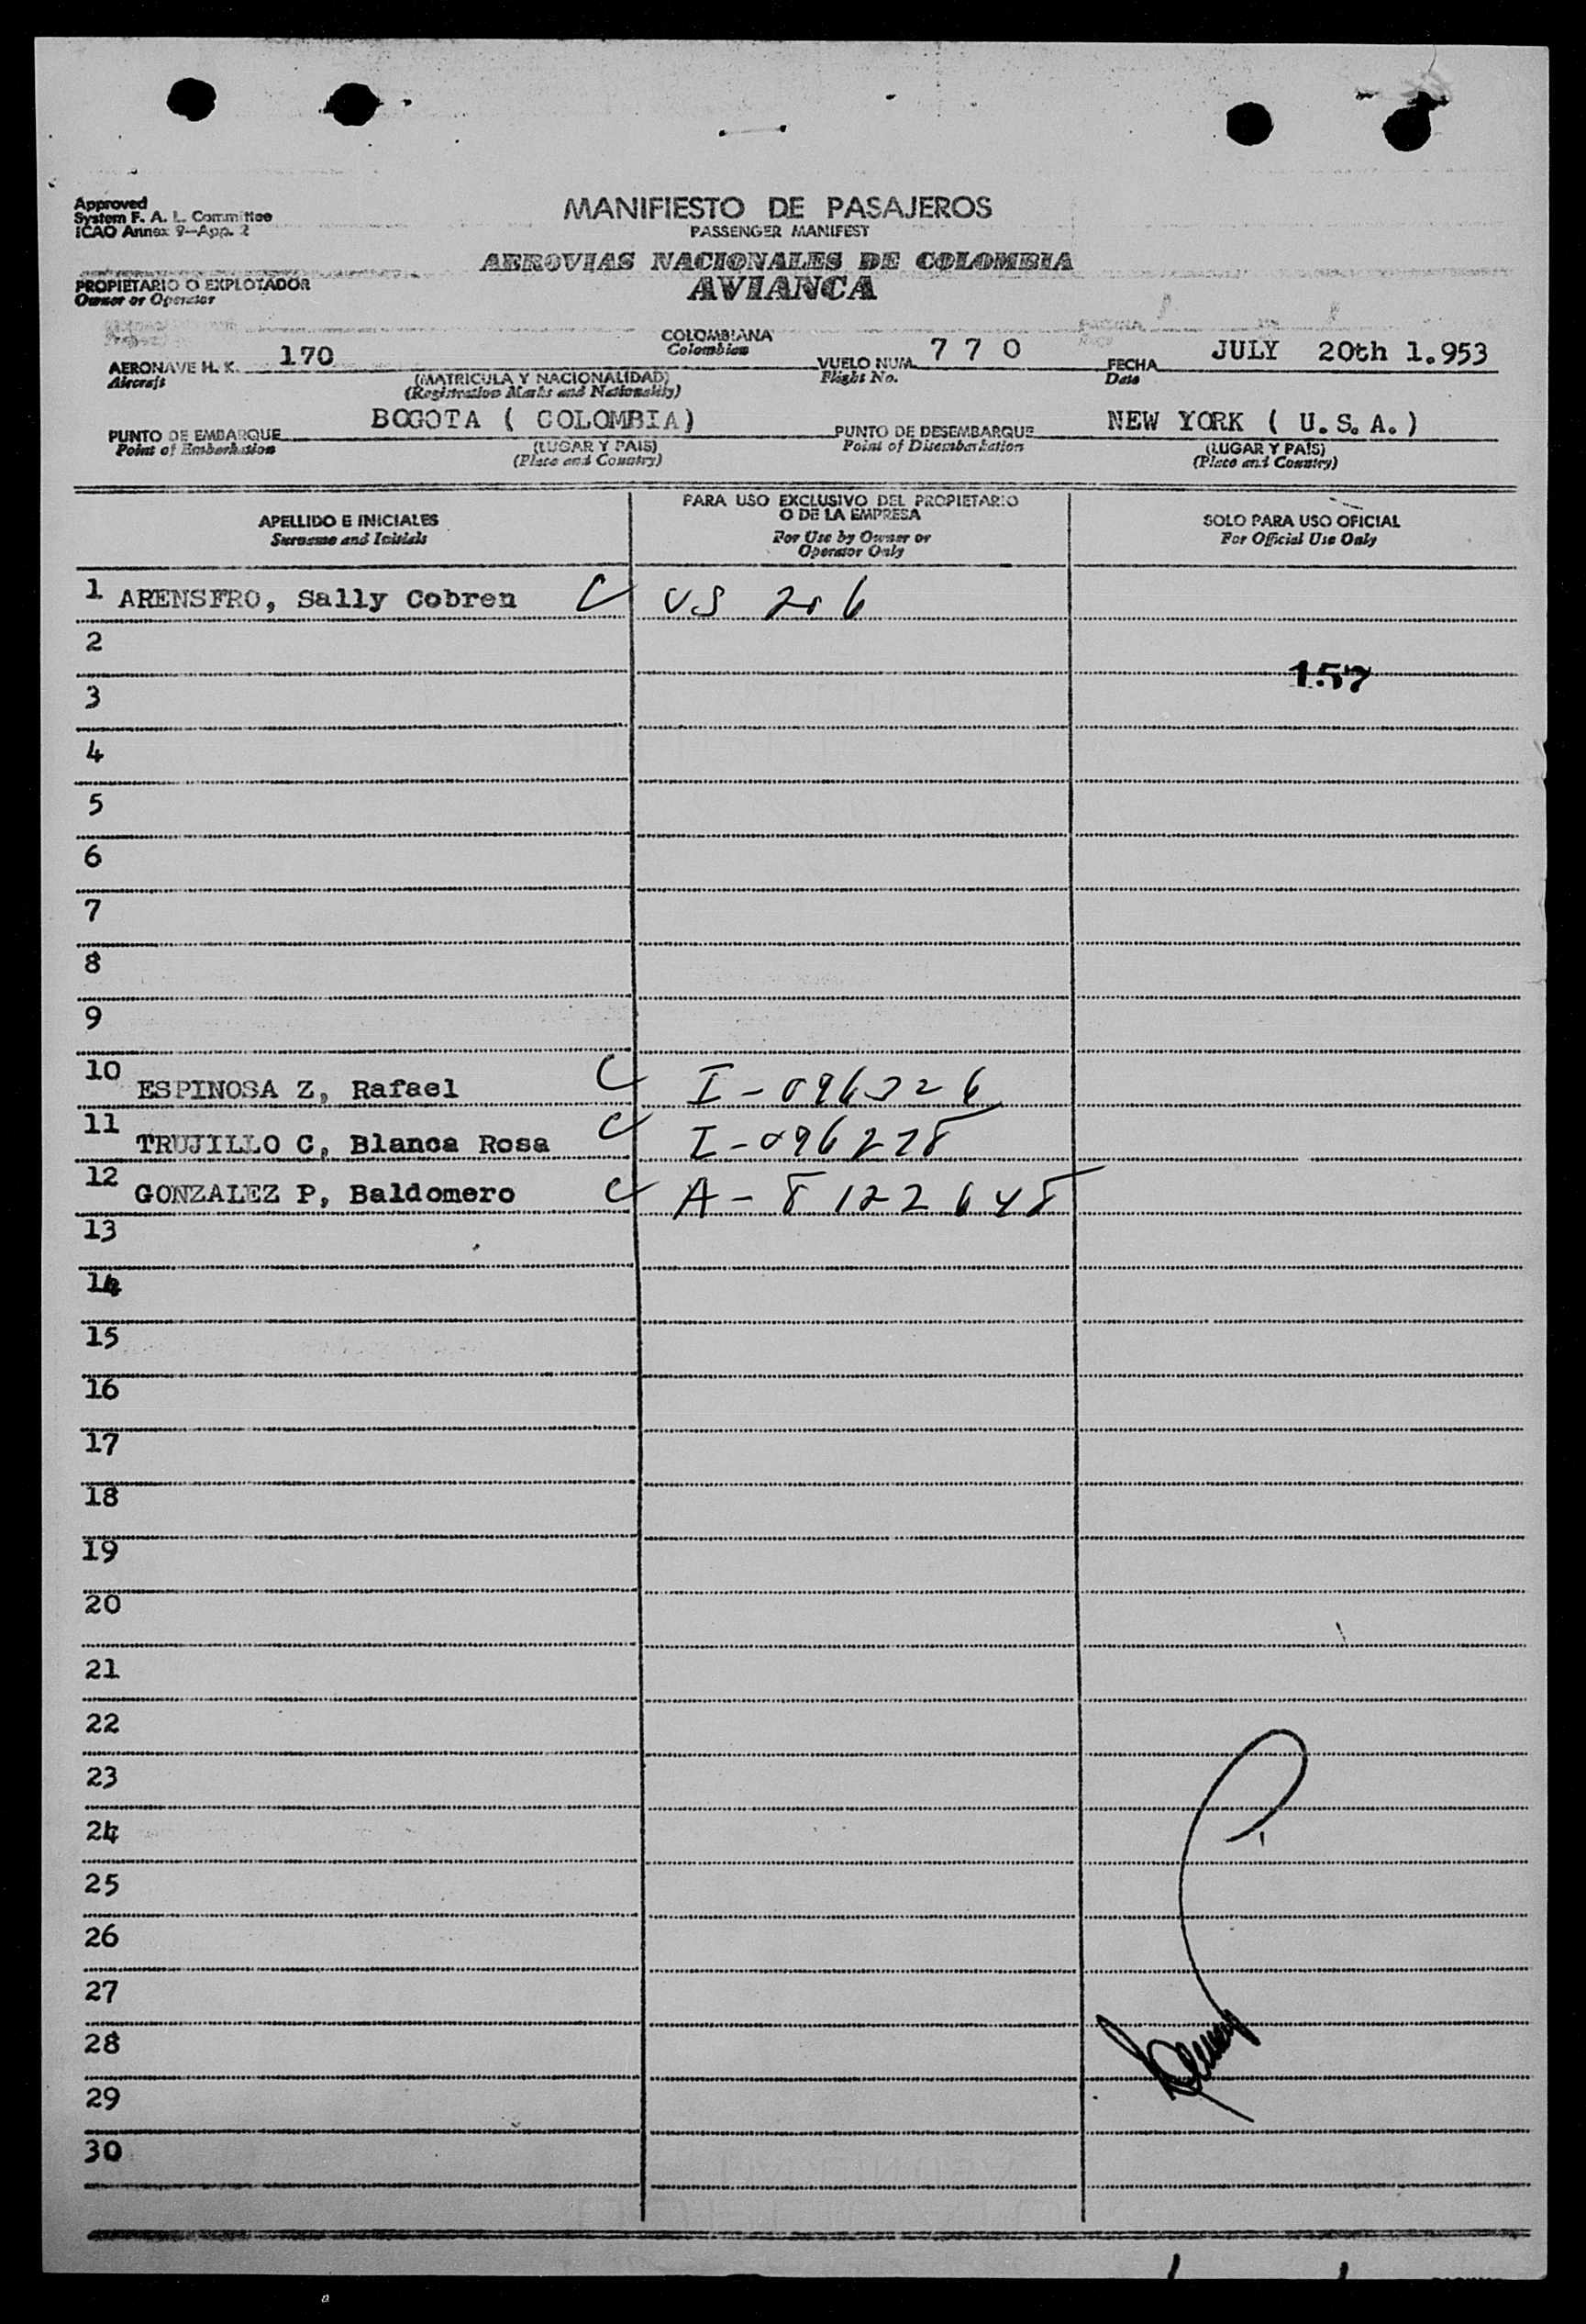 Approved
System F. A. L. Committee
ICAO Annex 9—App. 2
MANIFIESTO DE PASAJEROS
PASSENGER MANIFEST
AEROVIAS NACIONALES DE COLOMBIA
AVIANCA
PROPIETARIO O EXPLOTADOR
Owner or Operator
AERONAVE H. K. 170
Aircraft
COLOMBIANA
Colombian
(MATRICULA Y NACIONALIDAD)
(Registration Marks and Nationality)
VUELO NUM. 7 7 0
Flight No.
FECHA JULY 20th 1.953
Date
PUNTO DE EMBARQUE BOGOTA ( COLOMBIA)
Point of Embarkation
(LUGAR Y PAIS)
(Place and Country)
PUNTO DE DESEMBARQUE NEW YORK ( U.S.A.)
Point of Disembarkation
(LUGAR Y PAIS)
(Place and Country)
APELLIDO E INICIALES
Surname and Initials
PARA USO EXCLUSIVO DEL PROPIETARIO
O DE LA EMPRESA
For Use by Owner or
Operator Only
SOLO PARA USO OFICIAL
For Official Use Only
1 ARENSFRO, Sally Cobren C US 206
2
157
3
4
5
6
7
8
9
10 ESPINOSA Z, Rafael C I-096326
11 TRUJILLO C, Blanca Rosa C I-096278
12 GONZALEZ P, Baldomero C A-8122648
13
14
15
16
17
18
19
20
21
22
23
24
25
26
27
28
29
30